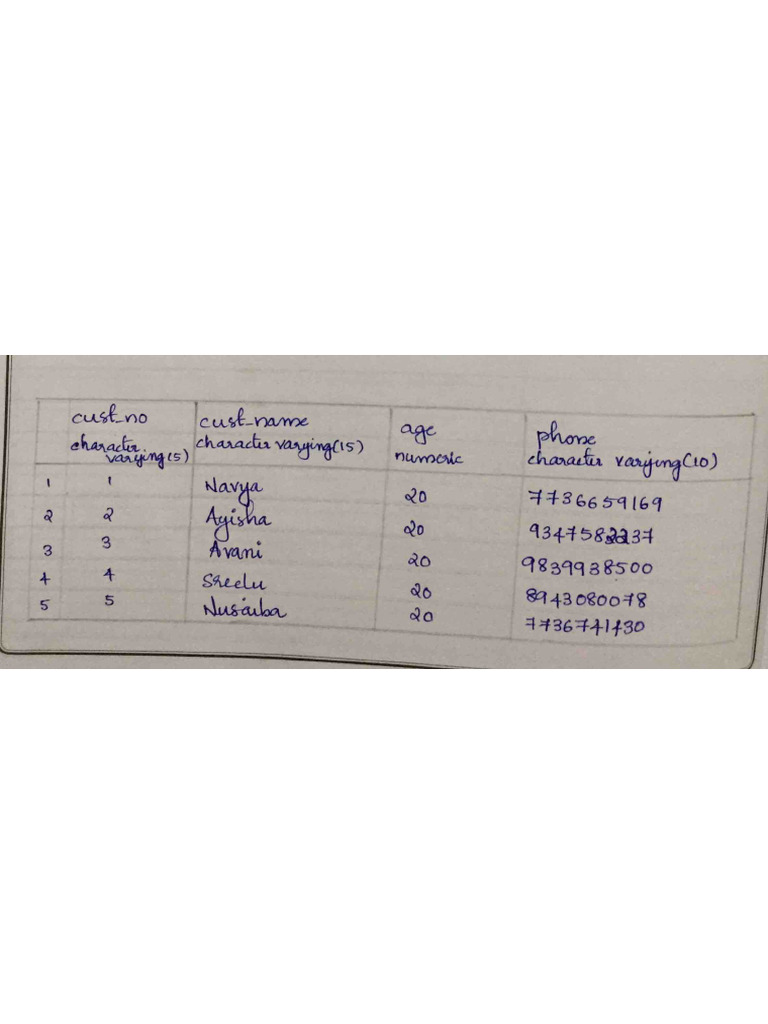 cust_no cust_name age phone
character varying(5) character varying(15) numeric character varying(10)
1 1 Navya 20 7736659169
2 2 Ayisha 20
3 3 Avani 20 9839938500
4 4 Sreelu 20 8943080078
5 5 Nusaiba 20 7736741430